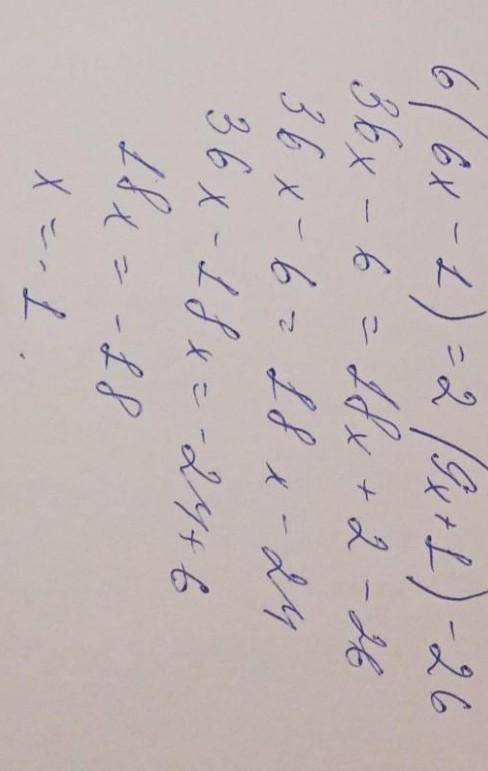 6(6x-1)=2(9x+1)-26
36x-6=18x+2-26
36x-6=18x-24
36x-18x=-24+6
18x=-18
x=-1.